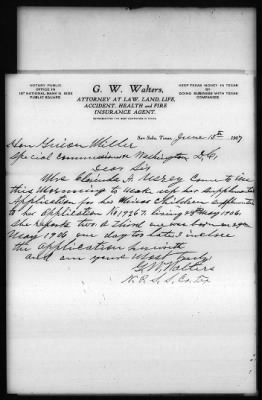 NOTARY PUBLIC
OFFICE IN
1ST NATIONAL BANK B'LDG
PUBLIC SQUARE
G. W. Walters,
ATTORNEY AT LAW, LAND, LIFE,
ACCIDENT, HEALTH and FIRE
INSURANCE AGENT.
KEEP TEXAS MONEY IN TEXAS
BY
DOING BUSINESS WITH TEXAS
COMPANIES
San Saba, Texas, June 15th 1907
Hon Guion Miller
Special Commissioner Washington D.C.
Dear Sir
Mrs Clarinda A. Uzzey Came to see
this Morning to Make up her supplimental
Application for her Minor Children
to her application No 19267. living 28th May 1906.
She Reports two. A third one was born on
May 1906 one day too late I inclose
the application herewith
and am yours Most truly
G W Walters
N.P. S. S. Co. Tx